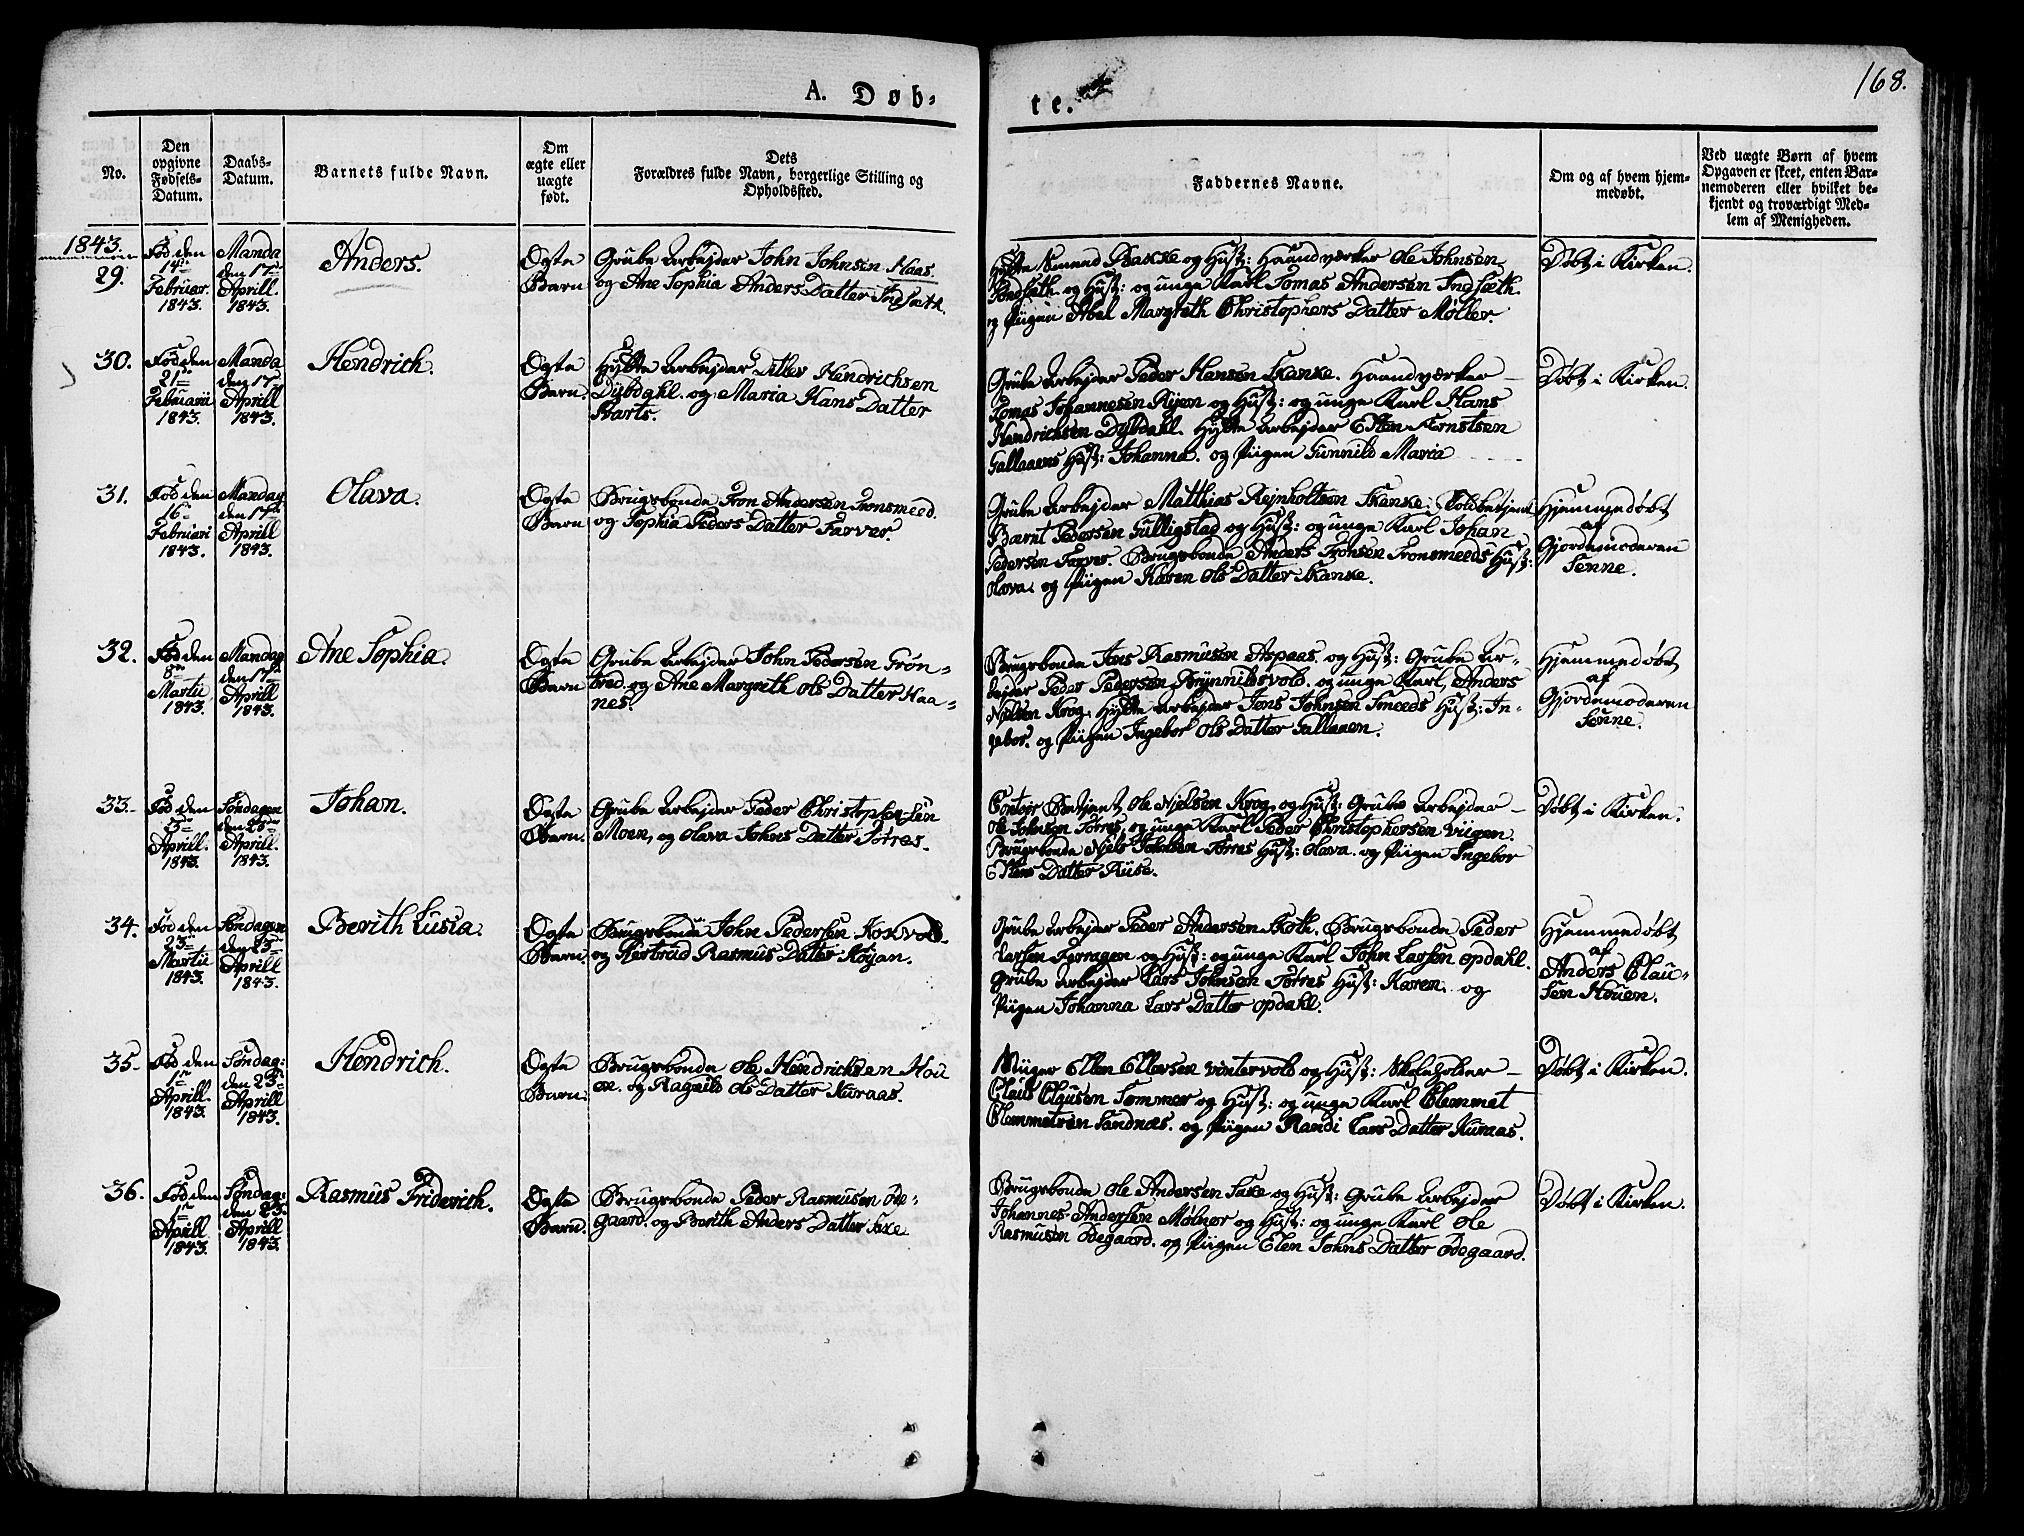 168.
A. Døb-
te.
No.
Den opgivne Fødsels-Datum.
Daabs-Datum.
Barnets fulde Navn.
Om ægte eller uægte født.
Dets Forældres fulde Navn, borgerlige Stilling og Opholdssted.
Faddernes Navne.
Om og af hvem hjem-medøbt.
Ved uægte Børn af hvem Opgaven er skeet, enten Bar-nemoderen eller hvilket be-kjendt og troværdigt Med-lem af Menigheden.
1843.
29.
Fød den
14de
Februar.
1843.
Manda
den 17de
Aprill.
1843.
Anders.
Ægte
Barn
Grube Arbejder John Johnsen Haas
og Ane Sophia Anders Datter Indsæth.
Hytte Smed Bakke og Hust: Haandværker Ole Johnsen
Indsæth. og Hust: og unge Karl Tomas Andersen Indsæth.
og Piigen Abel Margreth Christophers Datter Møller.
Døbt i Kirken.
30.
Fød den
21de
Februarii
1843.
Manda
den 17de
Aprill
1843.
Hendrich.
Ægte
Barn.
Hytte Arbejder Ditler Hendrichsen
Dybdahl. og Maria Hans Datter
Barts.
Grube Arbejder Peder Hansen Skanke. Haandværker
Tomas Johannesen Ryen og Hust: og unge Karl Hans
Hendrichsen Dybdahl. Hytte Arbejder Esten Ærnstsen
Gallaaens Hust: Johanna. og Piigen Gunnild Maria
Døbt i Kirken.
31.
Fød den
16de
Februari
1843.
Mandag
den 17de
Aprill
1843.
Olava.
Ægte
Barn
Brugsbonde Tron Andersen Tronsmeed.
og Sophia Peders Datter Farver.
Grube Arbejder Matthias Rejnholtsen Skanke. Toldbetjent
Bernt Pedersen Gulligstad og Hust: og unge Karl Johan
Pedersen Farver. Brugsbonde Anders Tronsen Tronsmeeds Hust:
Olava. og Piigen Karen Ols Datter Skanke.
Hjemmedøbt
af
Gjordemoderen
Senne.
32.
Fød den
8de
Martii
1843.
Mandag
den 17de
Aprill
1843.
Ane Sophia.
Ægte
Barn
Grube Arbejder John Pedersen Grøn-
bred og Ane Margreth Ols Datter Haa-
nes.
Brugsbonde Jens Rasmusen Aspaas. og Hust: Grube Ar-
bejder Peder Pedersen Brynnildsvold. og unge Karl, Anders
Nielsen Krog. Hytte Arbejder Jens Johnsen Smeeds Hust: In-
gebor. og Piigen Ingebor Ols Datter Gallaaen.
Hjemmedøbt
af
Gjordemoderen
Senne.
33.
Fød den
3de
Aprill.
1843.
Søndagen
den 23de
Aprill.
1843.
Johan.
Ægte
Barn.
Grube Arbejder Peder Christophersen
Moen, og Olava Johns Datter Tørres.
Contoir Betjent Ole Nielsen Krog, og Hust: Grube Arbejder
Ole Johnsen Tørres, og unge Karl Peder Christophersen Viigen.
Brugsbonde Niels Johnsen Tørres Hust: Olava. og Piigen Ingebor
Estens Datter Ruse.
Døbt i Kirken.
34.
Fød den
23de
Martii
1843.
Søndagen
den 23de
Aprill
1843.
Berith Lusia.
Ægte
Barn.
Brugsbonde John Pedersen Kokvold.
og Kiertrud Rasmus Datter Kojan.
Grube Arbejder Peder Andersen Skoth. Brugsbonde Peder
Larsen Feragen og Hust: og unge Karl John Larsen Opdahl.
Grube Arbejder Lars Johnsen Tørres Hust: Karen. og
Piigen Johanna Lars Datter Opdahl.
Hjemmedøbt
af
Anders Clau-
sen Houen.
35
Fød den
1de
Aprill.
1843.
Søndag:
den 23de
Aprill
1843.
Hendrich.
Ægte
Barn.
Brugsbonde Ole Hendrichsen Hou
en. og Ragnild Ols Datter Kuraas.
Ellen Ellersen Vintervold og Hust: Skoleholder
Claus Clausen Sommer og Hust: og unge Karl Clemmet
Clemmetsen Sandnæs. og Piigen Randi Lars Datter Kuraas.
Døbt i Kirken.
36.
Fød den
1de
Aprill
1843.
Søndag:
den 23.
Aprill
1843.
Rasmus Friderich.
Ægte
Barn.
Brugsbonde Peder Rasmusen Øde-
gaard. og Berith Anders Datter Saxe
Brugsbonde Ole Andersen Saxe og Hust: Grube Arbejder
Johannes Andersen Mølner og Hust: og unge Karl Ole
Rasmusen Ødegaard. og Piigen Elen Johns Datter Ødegaard.
Døbt i Kirken.